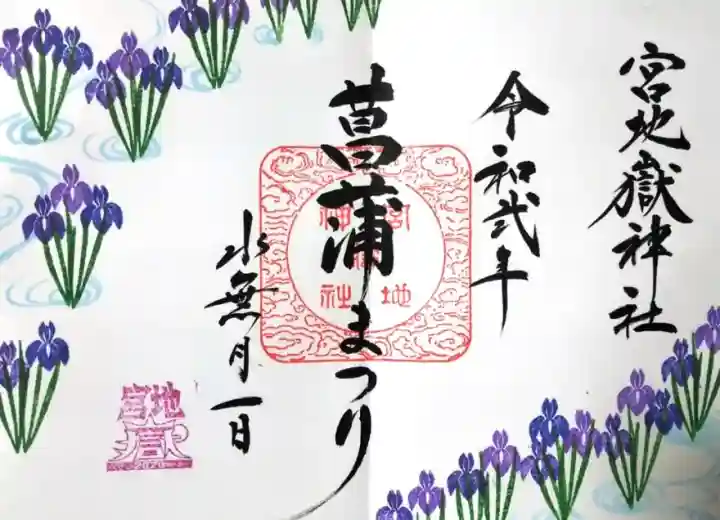 宮地嶽神社
令和弐年
菖蒲まつり
水無月一日
宮地嶽神社
宮地
2020